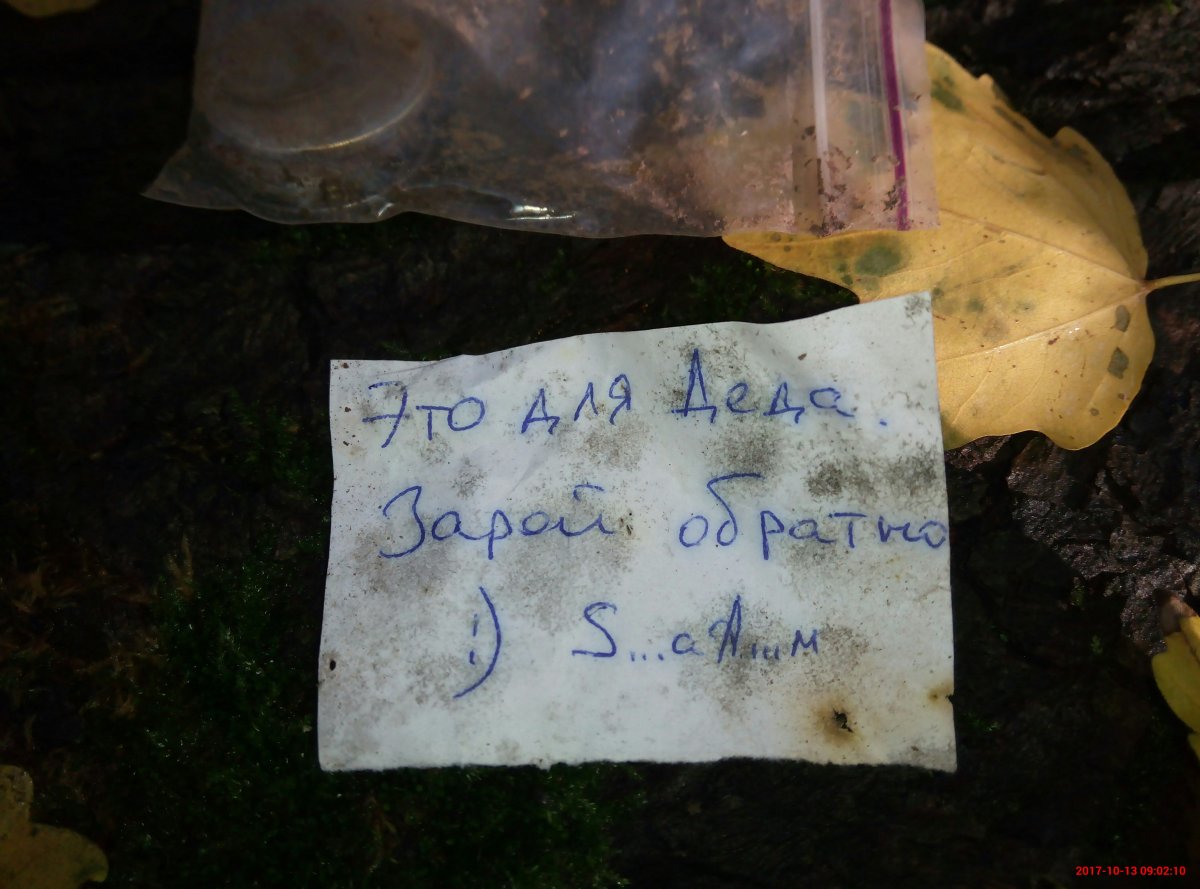 Это для Деда.
Зарой обратно
:) S...aA...м
2017-10-13 09:02:10